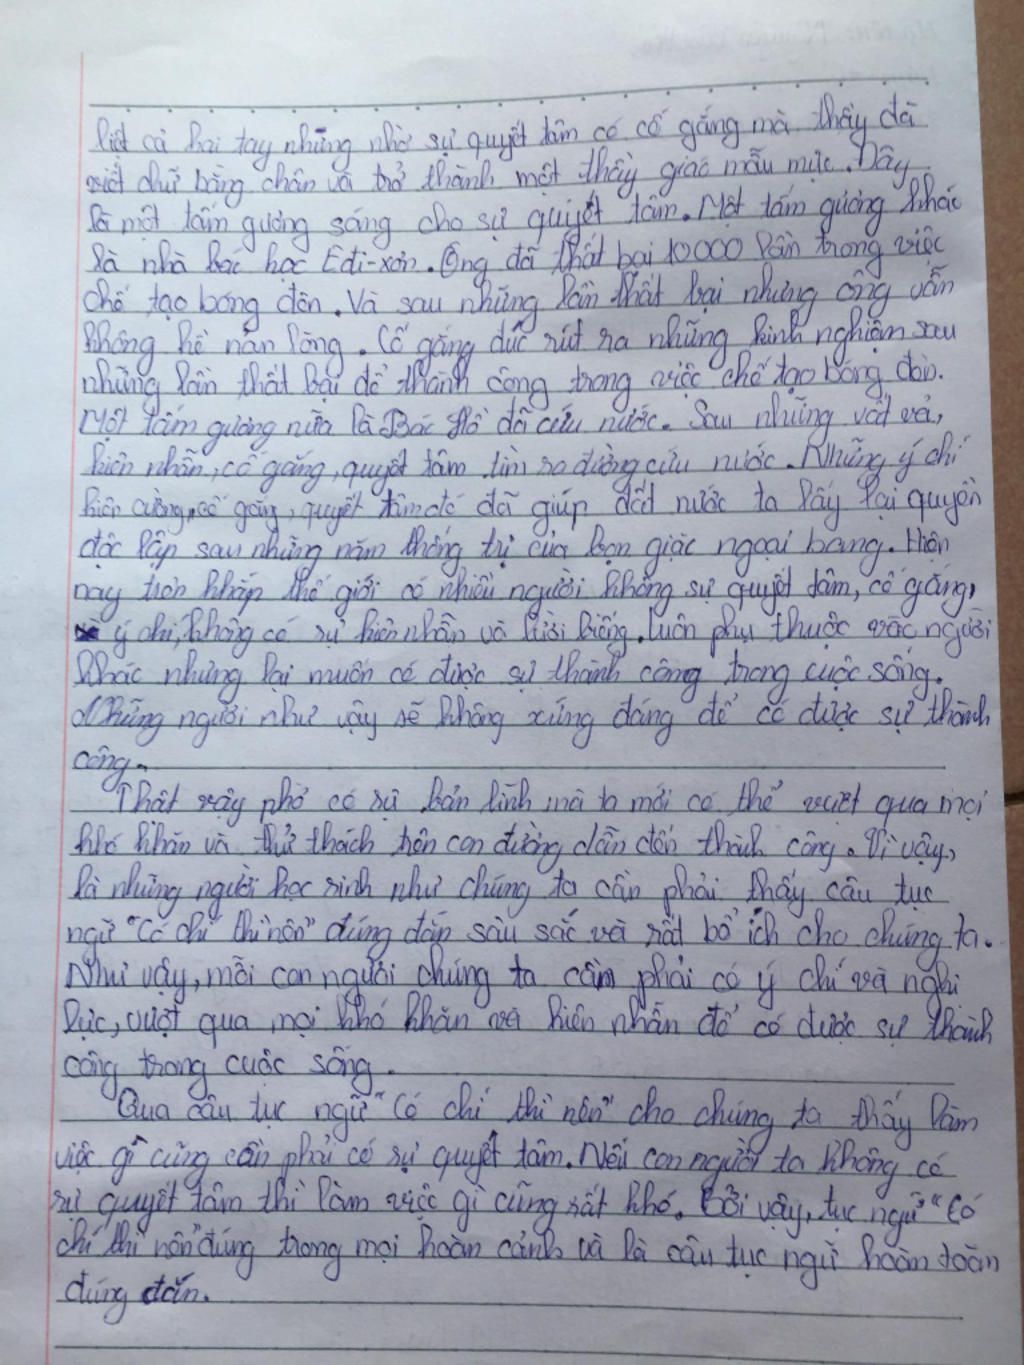 liệt cả hai tay nhưng nhờ sự quyết tâm có cố gắng mà thầy đã
viết chữ bằng chân và trở thành một thầy giáo mẫu mực. Đây
là một tấm gương sáng cho sự quyết tâm. Một tấm gương khác
là nhà bác học Êđi-xơn. Ông đã thất bại 10000 lần trong việc
chế tạo bóng đèn. Và sau những lần thất bại nhưng ông vẫn
không hề nản lòng. Cố gắng đúc rút ra những kinh nghiệm sau
những lần thất bại để thành công trong việc chế tạo bóng đèn.
Một tấm gương nữa là Bác Hồ đã cứu nước. Sau những vất vả,
kiên nhẫn, cố gắng, quyết tâm tìm ra đường cứu nước. Những ý chí
kiên cường, cố gắng, quyết tâm đó đã giúp đất nước ta lấy lại quyền
độc lập sau những năm thống trị của bọn giặc ngoại bang. Hiện
nay trên khắp thế giới có nhiều người không sự quyết tâm, cố gắng,
ý chí, không có sự kiên nhẫn và lười biếng. Luôn phụ thuộc vào người
khác nhưng lại muốn có được sự thành công trong cuộc sống.
Những người như vậy sẽ không xứng đáng để có được sự thành
công.
Thật vậy phở có sự bản lĩnh mà ta mới có thể vượt qua mọi
khó khăn và thử thách trên con đường dẫn đến thành công. Vì vậy,
là những người học sinh như chúng ta cần phải thấy câu tục
ngữ "Có chí thì nên" đúng đắn sâu sắc và rất bổ ích cho chúng ta.
Như vậy, mỗi con người chúng ta cần phải có ý chí và nghị
lực, vượt qua mọi khó khăn và kiên nhẫn để có được sự thành
công trong cuộc sống.
Qua câu tục ngữ "Có chí thì nên" cho chúng ta thấy làm
việc gì cũng cần phải có sự quyết tâm. Nếu con người ta không có
sự quyết tâm thì làm việc gì cũng rất khó. Bởi vậy, tục ngữ "Có
chí thì nên" đúng trong mọi hoàn cảnh và là câu tục ngữ hoàn toàn
đúng đắn.